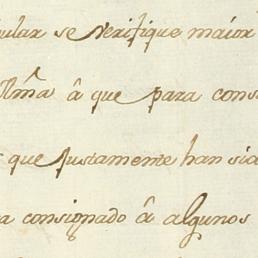 ular se verifique maior
Illma â que para cons
que justamente han sid
a consignado â algunos